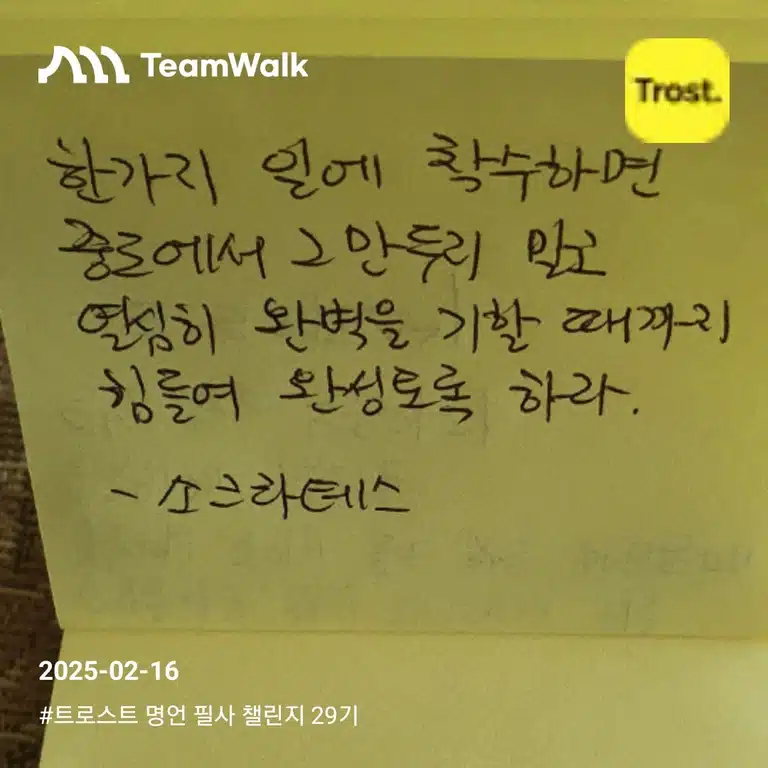 TeamWalk
Trost.
한가지 일에 착수하면
중도에서 그만두리 말고
열심히 완벽을 기할 때까지
힘들여 완성토록 하라.
- 소크라테스
2025-02-16
#트로스트 명언 필사 챌린지 29기